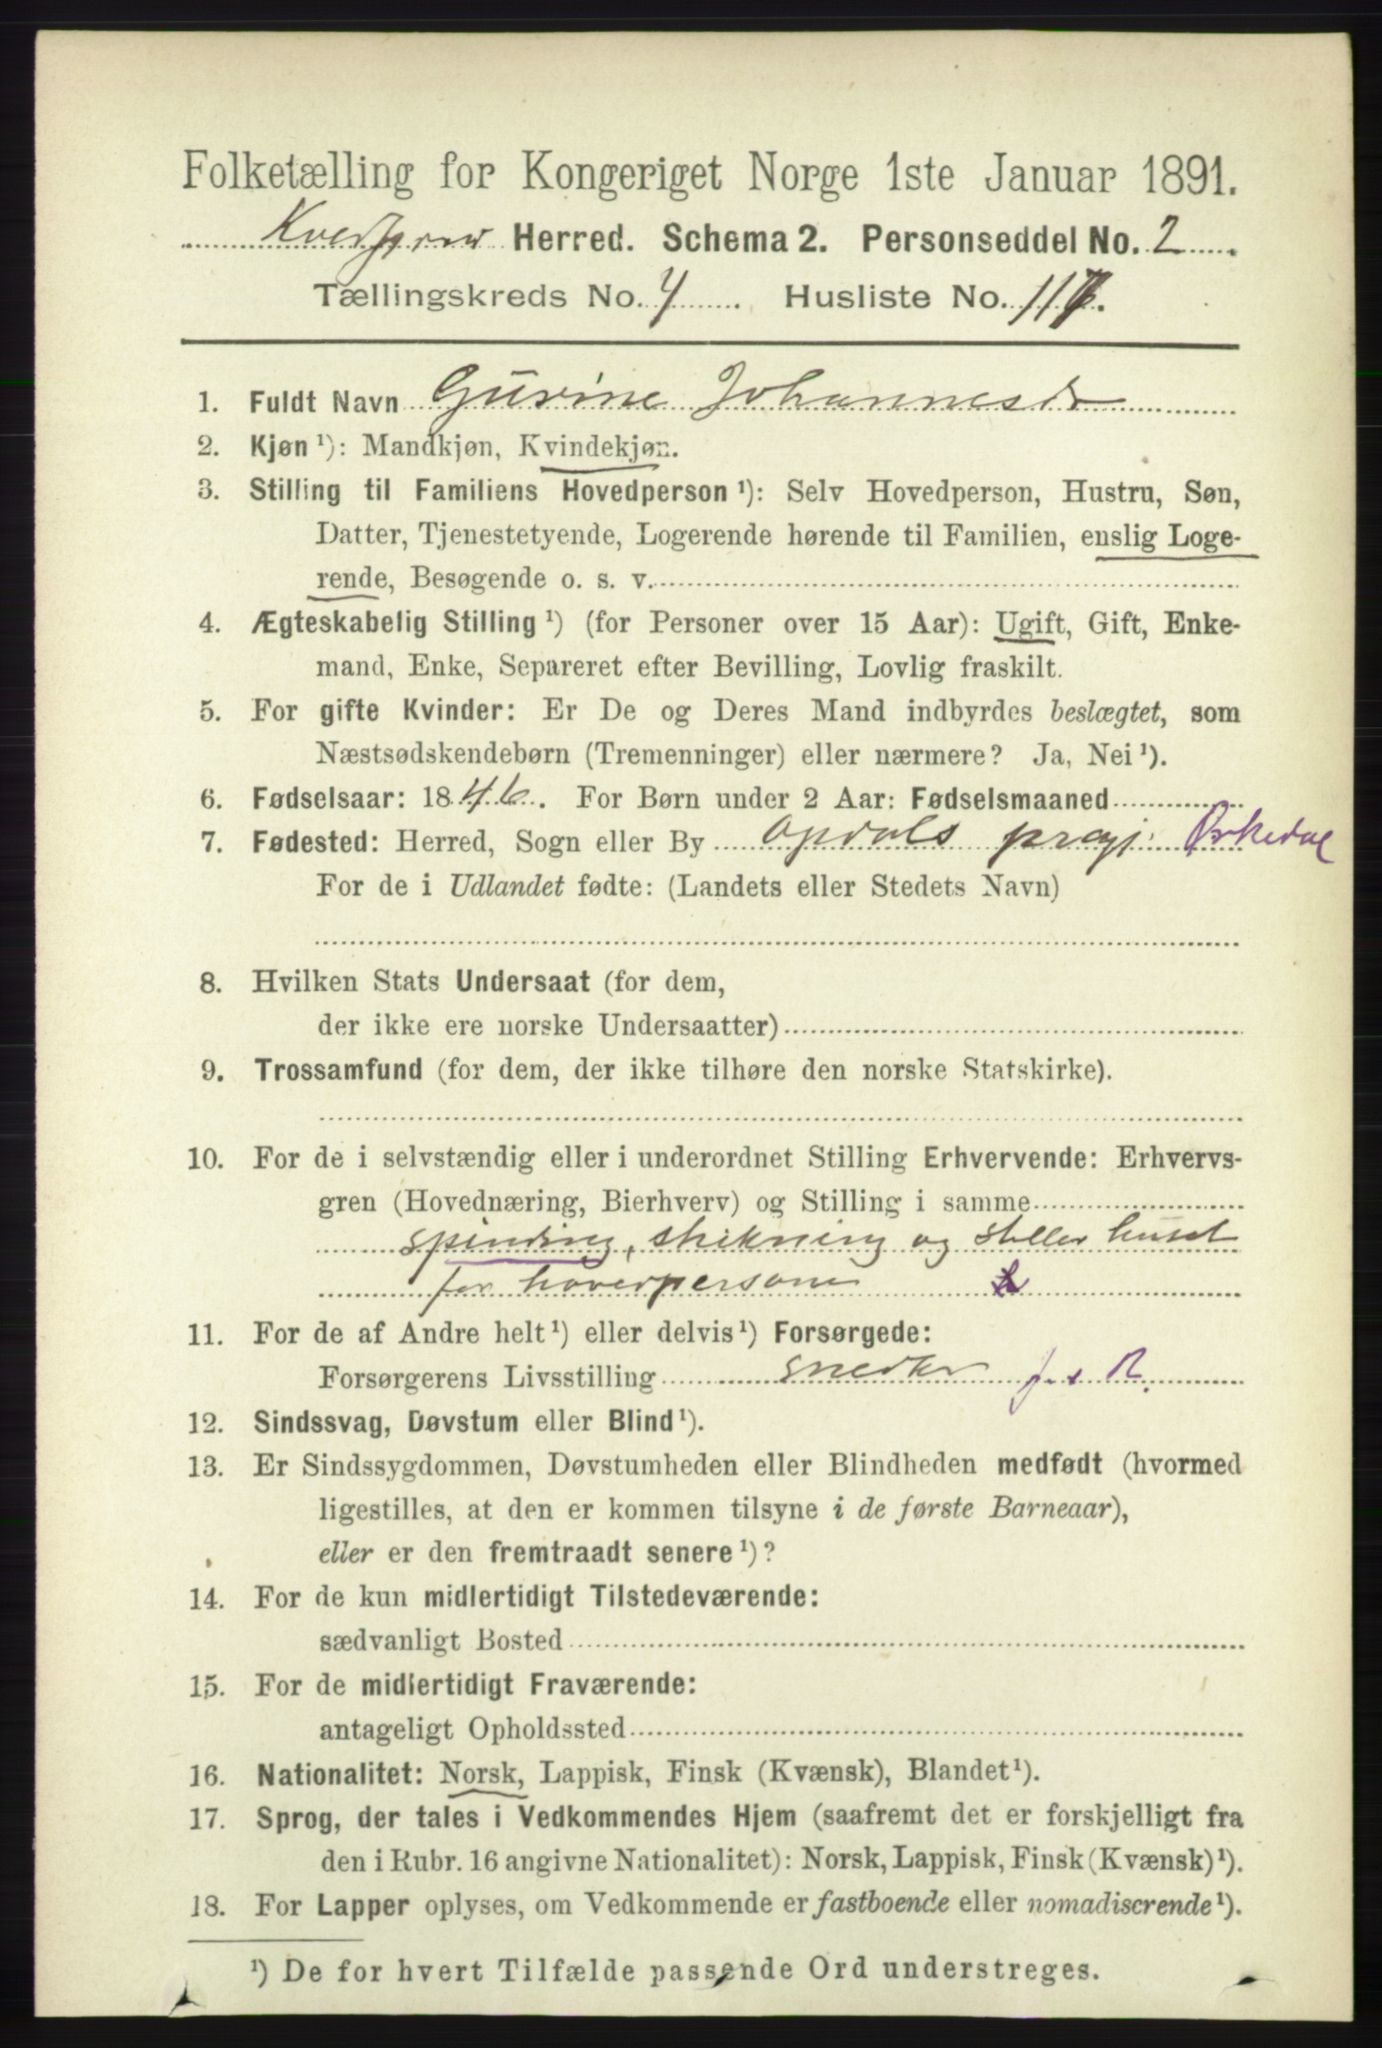 Folketælling for Kongeriget Norge 1ste Januar 1891.
Herred. Schema 2. Personseddel No. 2
Tællingskreds No. 4. Husliste No. 117.
1. Fuldt Navn Gurine Johannesd
2. Kjøn ¹): Mandkjøn, Kvindekjøn.
3. Stilling til Familiens Hovedperson ¹): Selv Hovedperson, Hustru, Søn,
Datter, Tjenestetyende, Logerende hørende til Familien, enslig Loge-
rende, Besøgende o. s. v.
4. Ægteskabelig Stilling ¹) (for Personer over 15 Aar): Ugift, Gift, Enke-
mand, Enke, Separeret efter Bevilling, Lovlig fraskilt.
5. For gifte Kvinder: Er De og Deres Mand indbyrdes beslægtet, som
Næstsødskendebørn (Tremenninger) eller nærmere? Ja, Nei ¹).
6. Fødselsaar: 1846. For Børn under 2 Aar: Fødselsmaaned
7. Fødested: Herred, Sogn eller By Opdals prægj. Orkedal
For de i Udlandet fødte: (Landets eller Stedets Navn)
8. Hvilken Stats Undersaat (for dem,
der ikke ere norske Undersaatter)
9. Trossamfund (for dem, der ikke tilhøre den norske Statskirke).
10. For de i selvstændig eller i underordnet Stilling Erhvervende: Erhvervs-
gren (Hovednæring, Bierhverv) og Stilling i samme
spinding, strikning og steller huset
for hoverpersone
11. For de af Andre helt ¹) eller delvis ¹) Forsørgede:
Forsørgerens Livsstilling snedker f. s. R.
12. Sindssvag, Døvstum eller Blind ¹).
13. Er Sindssygdommen, Døvstumheden eller Blindheden medfødt (hvormed
ligestilles, at den er kommen tilsyne i de første Barneaar),
eller er den fremtraadt senere ¹)?
14. For de kun midlertidigt Tilstedeværende:
sædvanligt Bosted
15. For de midlertidigt Fraværende:
antageligt Opholdssted
16. Nationalitet: Norsk, Lappisk, Finsk (Kvænsk), Blandet ¹).
17. Sprog, der tales i Vedkommendes Hjem (saafremt det er forskjelligt fra
den i Rubr. 16 angivne Nationalitet): Norsk, Lappisk, Finsk (Kvænsk) ¹).
18. For Lapper oplyses, om Vedkommende er fastboende eller nomadiserende ¹).
¹) De for hvert Tilfælde passende Ord understreges.